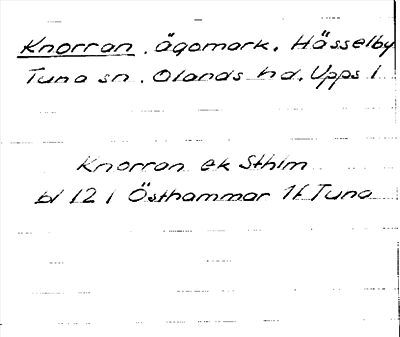 Knorran. ägomark. Hässelby
Tuna sn. Olands hd. Upps l
Knorran ek Sthlm
bl 12 i Östhammar 1f Tuna